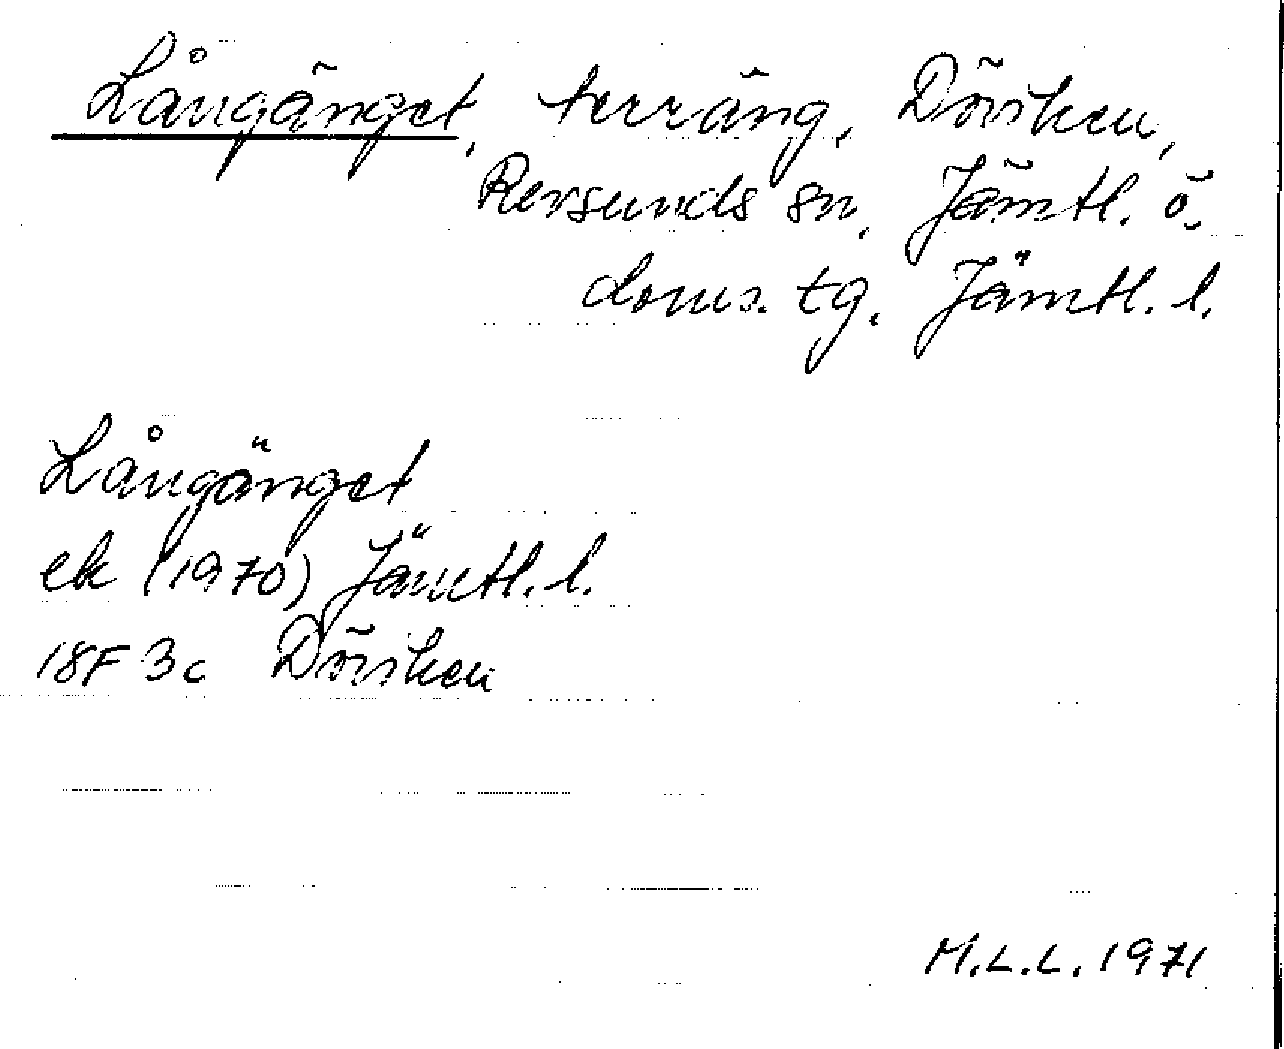 Långänget, terräng, Döviken,
Revsunds sn, Jämtl. ö.
doms. tg. Jämtl. l.
Långänget
ek (1970) Jämtl. l.
18F 3c Döviken
M.L.L. 1971